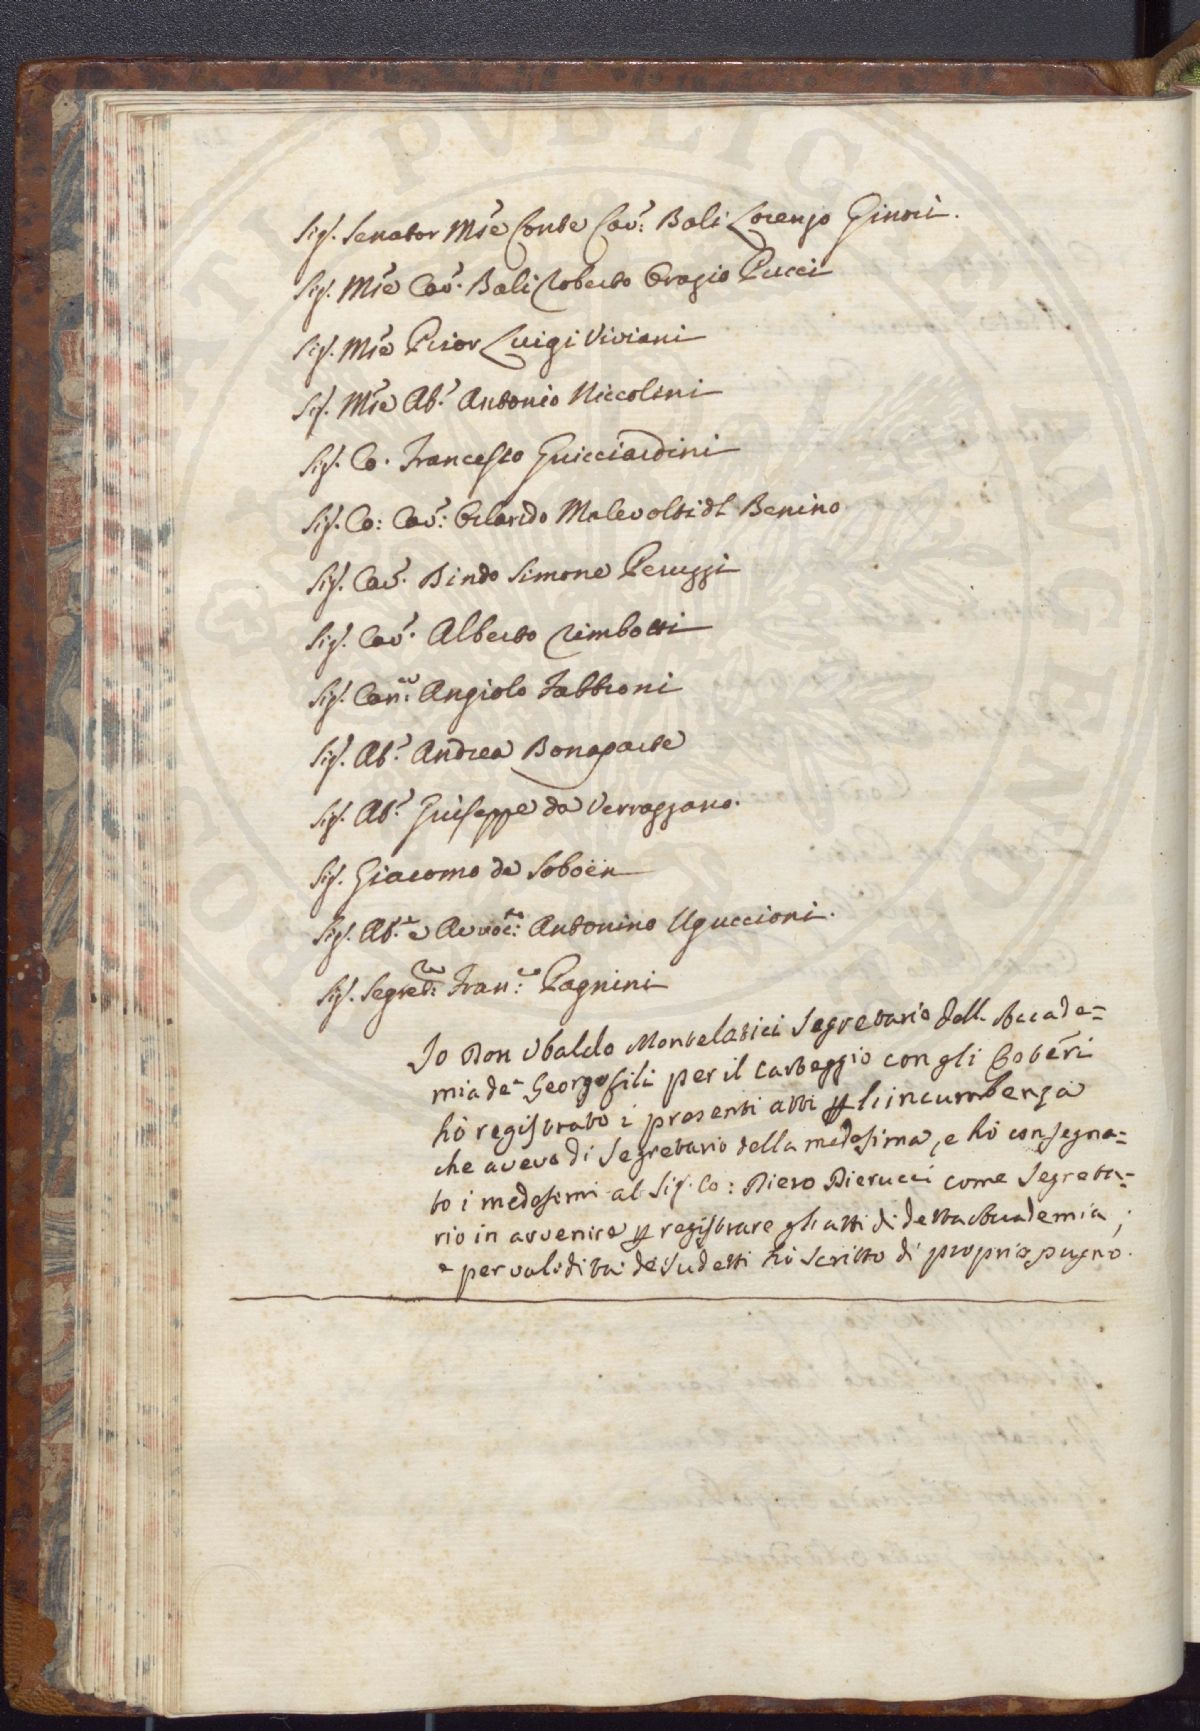 Sig.r Senator M.se Conte Cav.r Balì Lorenzo Ginori.
Sig.r M.se Cav.r Balì Roberto Orazio Pucci
Sig.r M.se Prior Luigi Viviani
Sig.r M.se Ab.e Antonio Niccolini
Sig.r Co. Francesco Guicciardini
Sig.r Co: Cav.r: Orlando Malevolti dl Benino
Sig.r Cav.r Bindo Simone Peruzzi
Sig.r Cav.r Alberto Rimbotti
Sig.r Can.co: Angiolo Fabbroni
Sig.r Ab.e Andrea Bonaparte
Sig.r Ab.e Giuseppe da Verrazzano.
Sig.r Giacomo de Soboën
Sig.r Ab.e e Avvoc.to: Antonino Uguccioni.
Sig.r Segret.rio: Fran.co: Pagnini
Io Don Ubaldo Montelatici Segretario dell. Accade=
mia de' Georgofili per il carteggio con gli Esteri
hò registrato i presenti atti p l'incumbenza
che avevo di Segretario della medesima, e hò consegna=
to i medesimi al Sig.r Co: Piero Pierucci come Segreta=
rio in avvenire p registrare gli atti di detta Accademia;
e per validità de' sudetti hò scritto di proprio pugno.